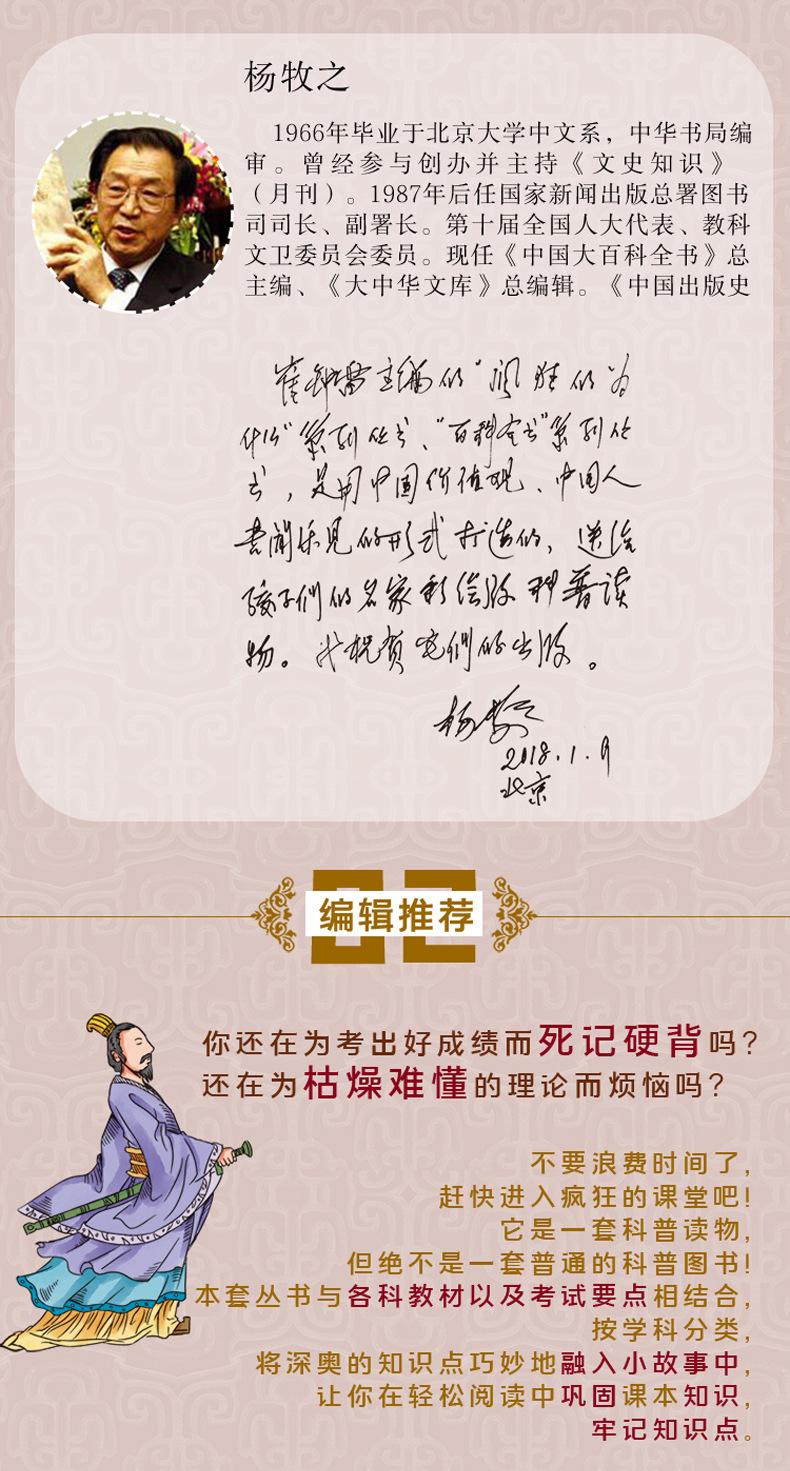 杨牧之
1966年毕业于北京大学中文系，中华书局编
审。曾经参与创办并主持《文史知识》
（月刊）。1987年后任国家新闻出版总署图书
司司长、副署长。第十届全国人大代表、教科
文卫委员会委员。现任《中国大百科全书》总
主编、《大中华文库》总编辑。《中国出版史
崔钟雷主编的“疯狂的为
什么”系列丛书、“百科全书”系列丛
书，是用中国价值观、中国人
喜闻乐见的形式打造的，送给
孩子們的名家彩绘版科普读
物。我祝贺它們的出版。
杨牧之
2018.1.9
北京
02
编辑推荐
你还在为考出好成绩而死记硬背吗?
还在为枯燥难懂的理论而烦恼吗?
不要浪费时间了,
赶快进入疯狂的课堂吧!
它是一套科普读物,
但绝不是一套普通的科普图书!
本套丛书与各科教材以及考试要点相结合,
按学科分类,
将深奥的知识点巧妙地融入小故事中,
让你在轻松阅读中巩固课本知识,
牢记知识点。